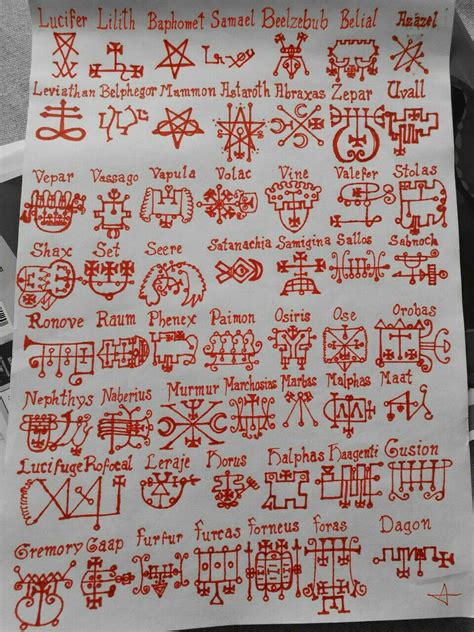 Lucifer Lilith Baphomet Samael Beelzebub Belial Azazel
Leviathan Belphegor Mammon Astaroth Abraxas Zepar Uvall
Vepar Vassago Vapula Volac Vine Valefer Stolas
Shax Set Seere Satanachia Samigina Sallos Sabnoch
Ronove Raum Phenex Paimon Osiris Ose Orobas
Nephthys Naberius Murmur Marchosias Marbas Malphas Maat
Lucifuge Rofocal Leraje Horus Halphas Haagenti Gusion
Gremory Gaap Furfur Furcas Forneus Foras Dagon